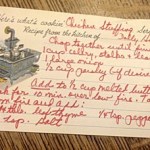 Here's what's cookin' Chicken Stuffing Ser
Recipe from the kitchen of
Chop together until fine
1 cup celery, stalks &
1 large onion
1/2 cup parsley (if desired
Add to 1/2 cup melted butter
10 min. over low fire.
fire and add:
thyme 1/2 tsp. pepper
tsp. salt